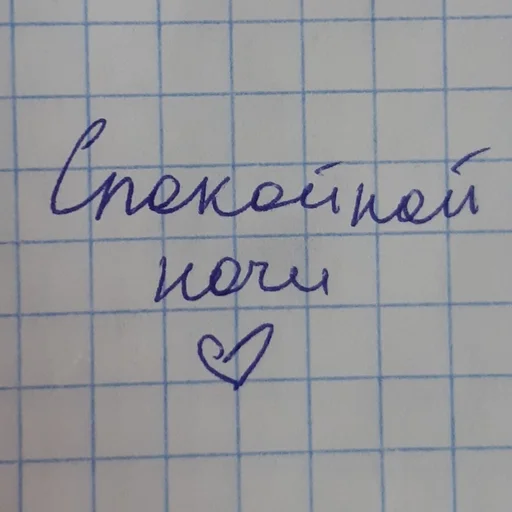 Спокойной
ночи